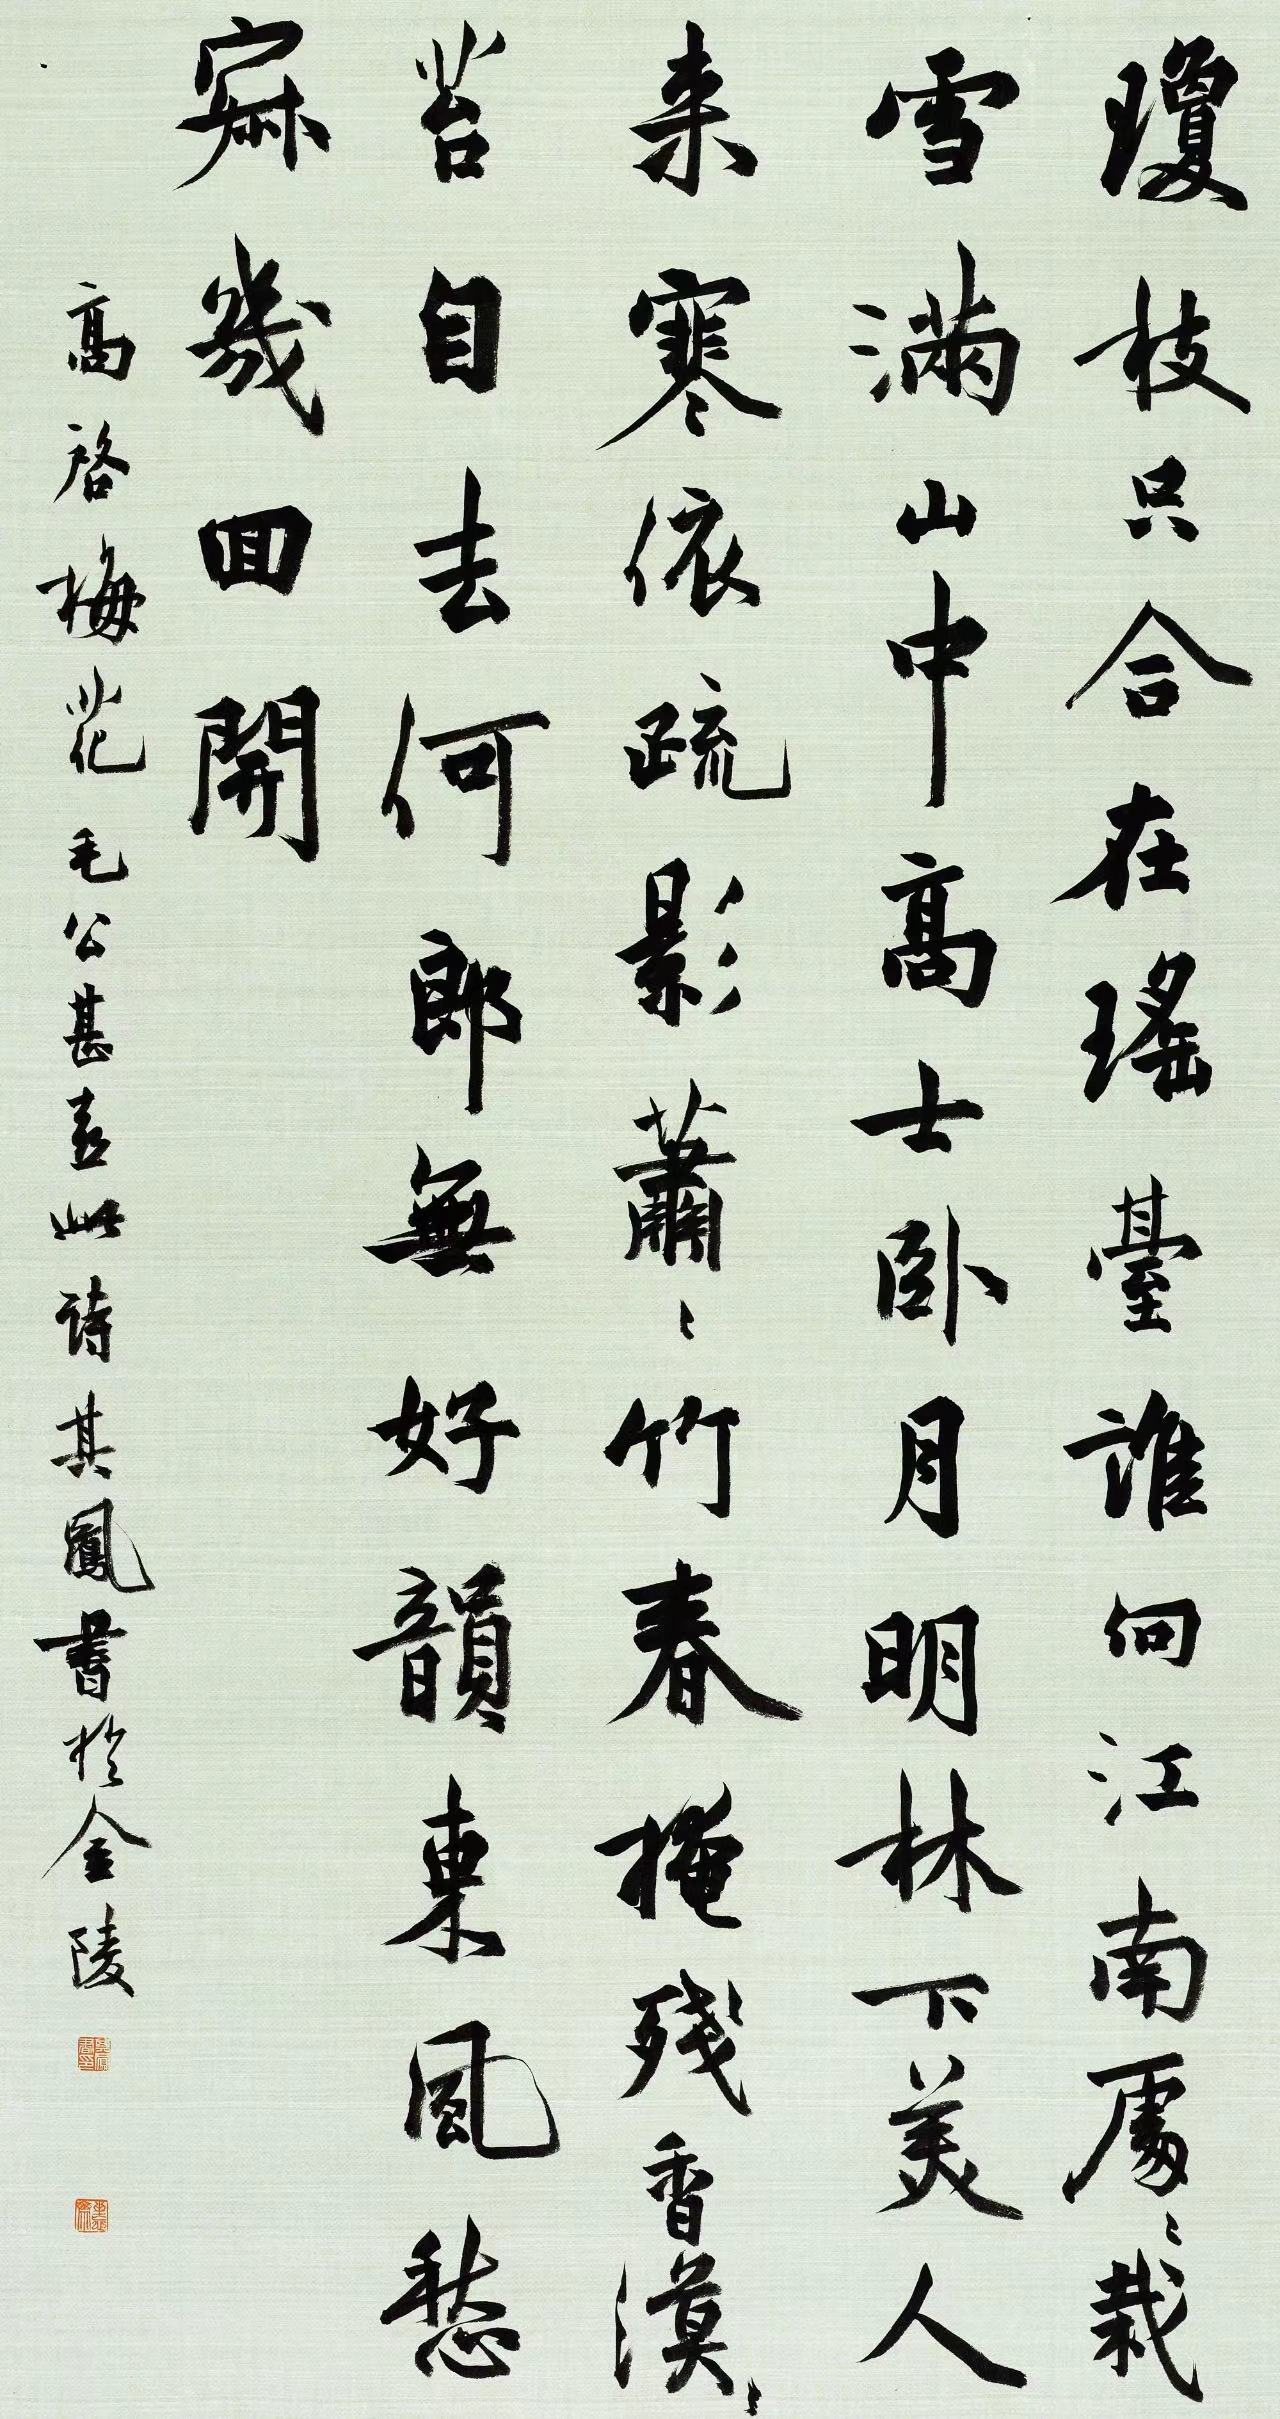 瓊枝只合在瑤臺誰向江南處〻栽
雪滿山中高士卧月明林下美人
来寒依疏影蕭〻竹春掩殘香漠〻
苔自去何郎無好韻東風愁
寂幾回開
高啓梅花 毛公甚喜此詩 其鳳書於金陵